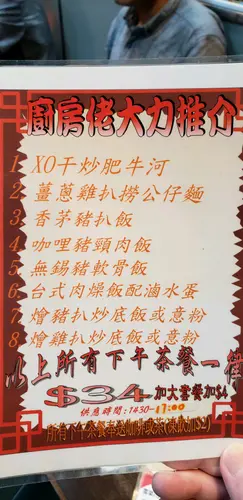 廚房佬大力推介
1. XO干炒肥牛河
2. 薑蔥雞扒撈公仔麵
3. 香茅豬扒飯
4. 咖哩豬頸肉飯
5. 無錫豬軟骨飯
6. 台式肉燥飯配滷水蛋
7. 燴豬扒炒底飯或意粉
8. 燴雞扒炒底飯或意粉
以上所有下午茶餐一律
$34 加大套餐加$4
供應時間:1430-17:00
所有下午茶餐奉送咖啡或茶(凍飲加$2)